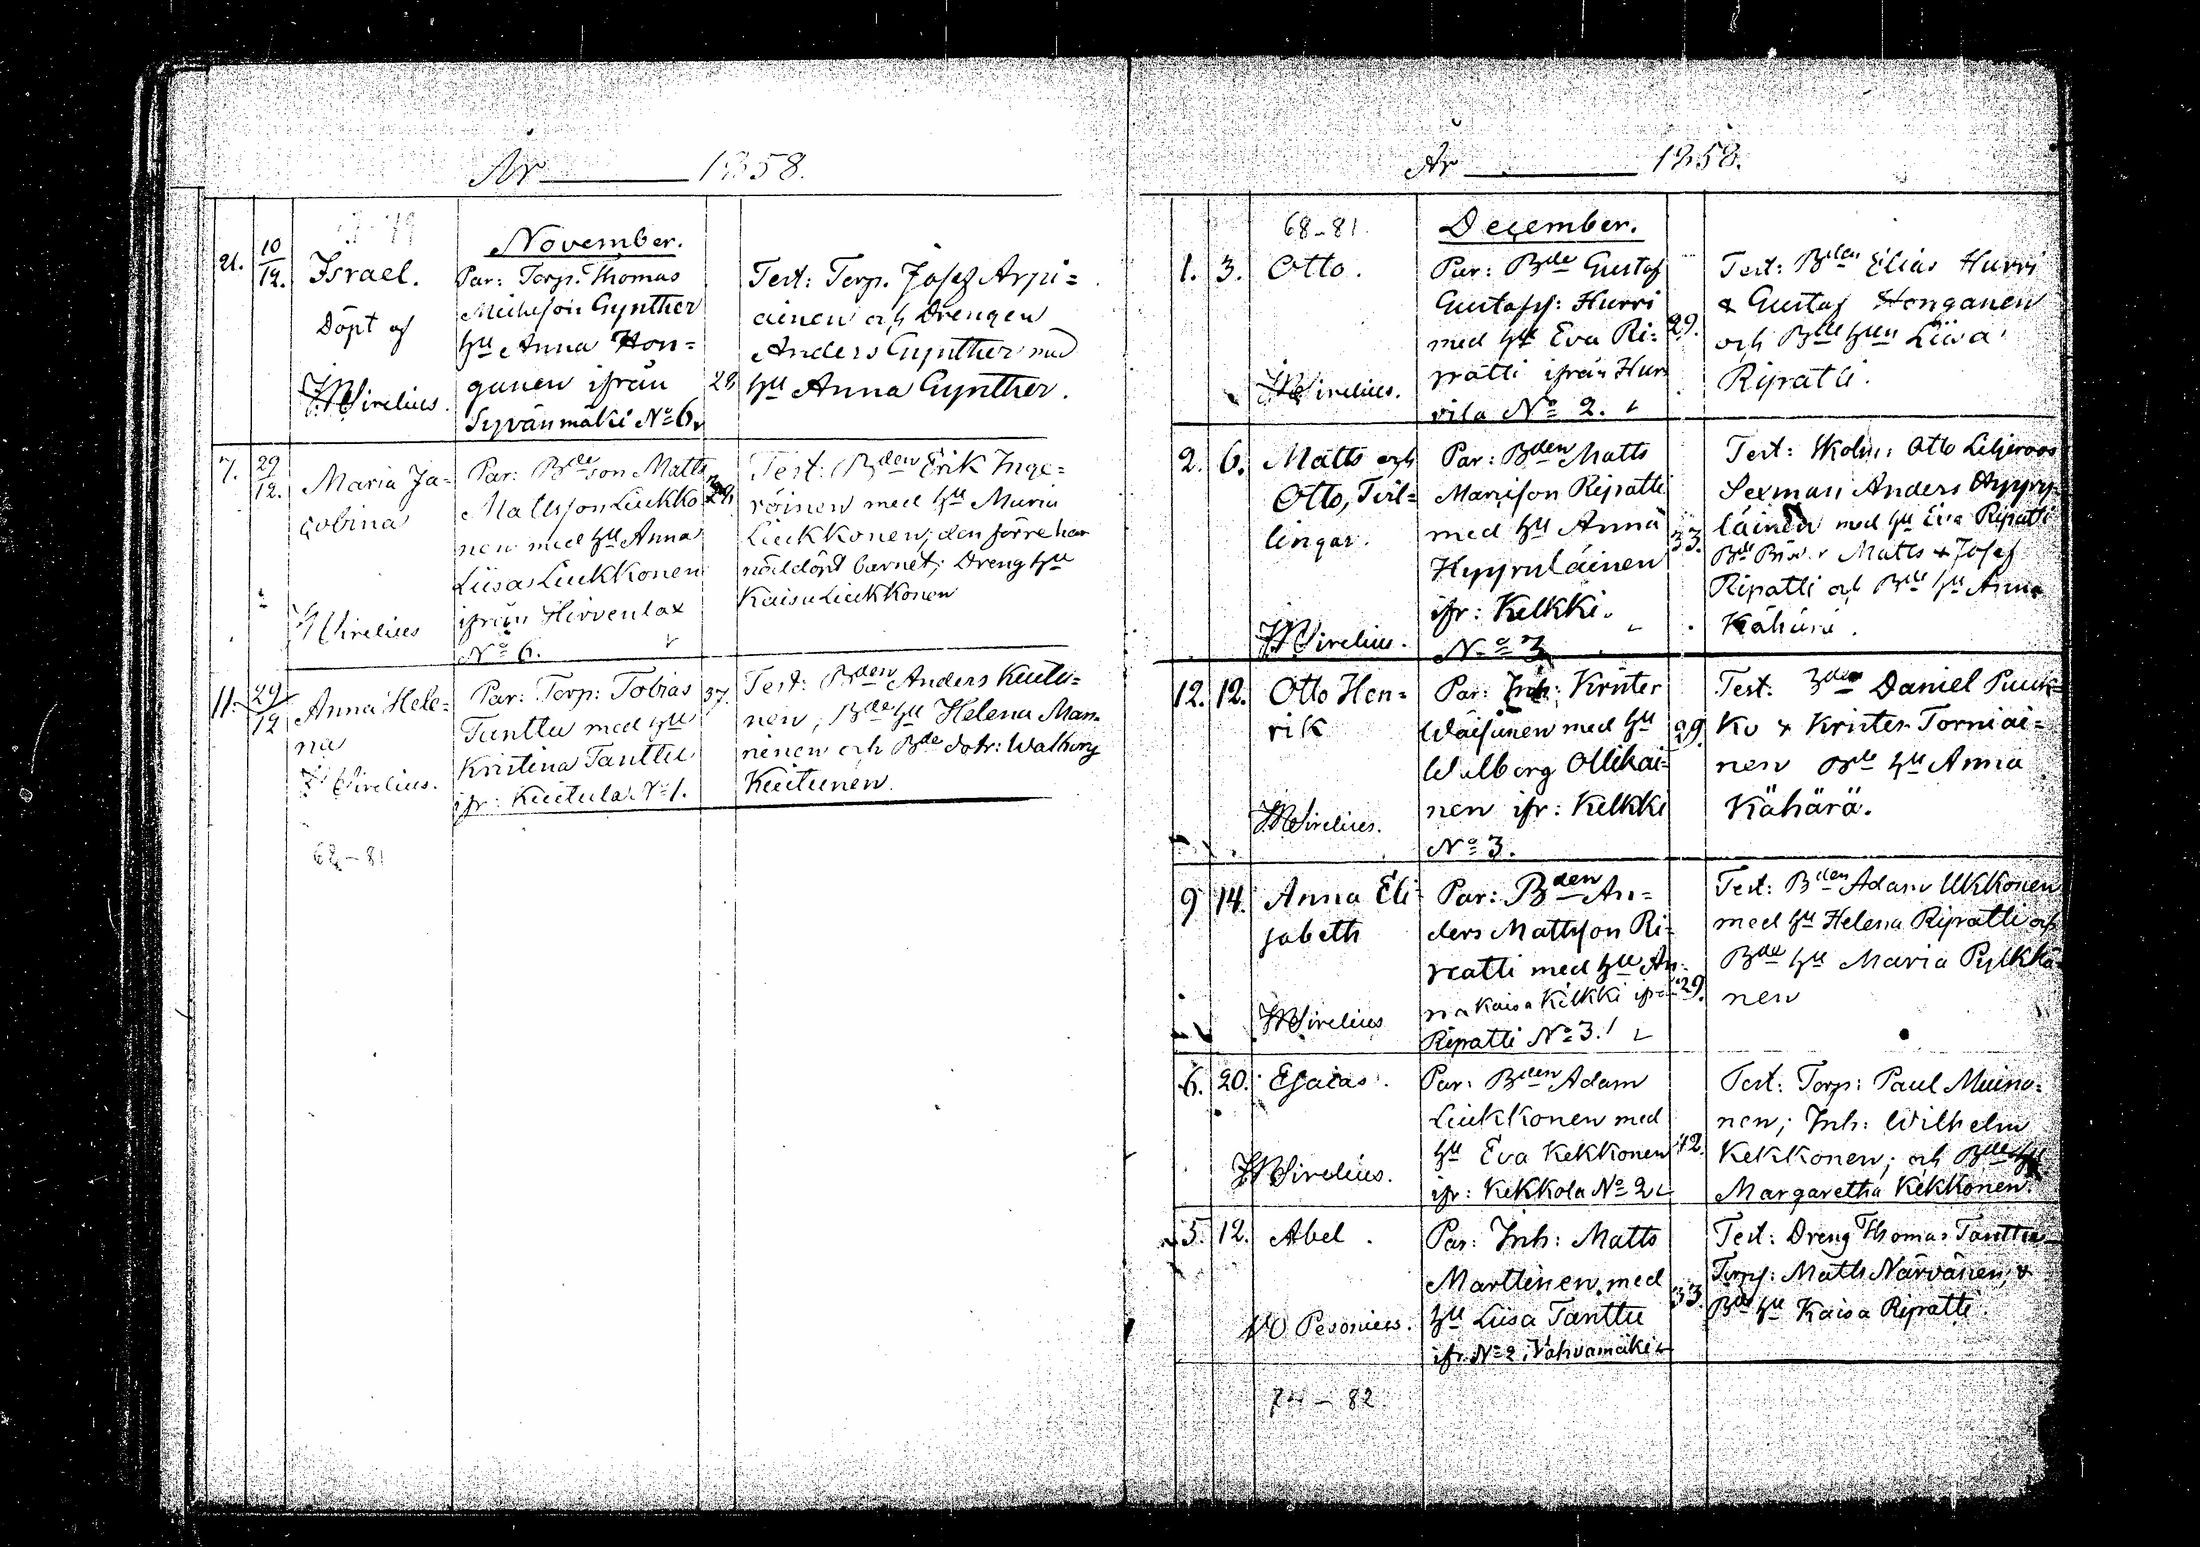 År 1858.
November.
21. 10/12. Israel.
Döpt af
JWSirelius.
Par: Torp. Thomas
Michelson Gynther
hu Anna Hon=
ganen ifrån
Syvänmäki No 6.
28
Test: Torp. Josef Arpi=
ainen och Drengen
Anders Gynther med
hu Anna Gynther.
7. 29/12. Maria Ja=
cobina
JWSirelius
Par: Bdeson Matts
Mattsson Liukko
nen med hu Anna
Liisa Liukkonen
ifrån Hirvenlax
No 6.
Test: Bden Erik Inge=
röinen med hu Maria
Liukkonen, den förre har
nöddöpt barnet; Dreng hu
Kaisa Liukkonen
11. 29/12 Anna Hele=
na
JWSirelius.
Par: Torp: Tobias
Tanttu med hu
Kristina Tanttu
ifr: Kuitula No 1.
37.
Test: Bden Anders Kuitu=
nen, Bde hu Helena Man=
ninen och Bde dotr: Walborg
Kuitunen.
68-81
År 1858.
68-81.
December.
1. 3. Otto.
JWSirelius.
Par: Bde Gustaf
Gustafss: Hurri
med hu Eva Ri=
patti ifrån Hur
vila No 2.
29.
Test: Bden Elias Hurri
& Gustaf Honganen
och Bde hun Liisa
Ripatti.
2. 6. Matts och
Otto, Tvil=
lingar.
JWSirelius.
Par: Bden Matts
Mattsson Ripatti
med hu Anna
Hyyryläinen
ifr: Kelkki.
No 3
33.
Test: Skolm: Otto Liljeroos
Sexman Anders Hyyry=
läinen med hu Eva Ripatti
Bde Matts & Josef
Ripatti och Bde hu Anna
Kähärä.
12. 12. Otto Hen=
rik
JWSirelius.
Par: Inh: Krister
Wäisänen med hu
Walborg Ollikai=
nen ifr: Kelkki
No 3.
29.
Test: Bden Daniel Puuk=
ko & Krister Torniai=
nen Bde hu Anna
Kähärä.
9 14. Anna Eli
sabeth
JWSirelius
Par: Bden An=
ders Mattsson Ri=
patti med hu An=
na Kaisa Kelkki ifrån
Ripatti No 3.
29.
Test: Bden Adam Ukkonen
med hu Helena Ripatti och
Bde hu Maria Pylkkä=
nen
6. 20. Esaias.
JWSirelius.
Par: Bden Adam
Liukkonen med
hu Eva Kekkonen
ifr: Kekkola No 2
42.
Test: Torp: Paul Muino=
nen; Inh: Wilhelm
Kekkonen; och Bde hu
Margaretha Kekkonen.
5. 12. Abel.
Pesonius.
Par: Inh: Matts
Marttinen med
hu Liisa Tanttu
ifr. No 2, Vahvamäki
33.
Test: Dreng Thomas Tanttu
Torp: Matts Närvänen, &
Bde hu Kaisa Ripatti.
74-82